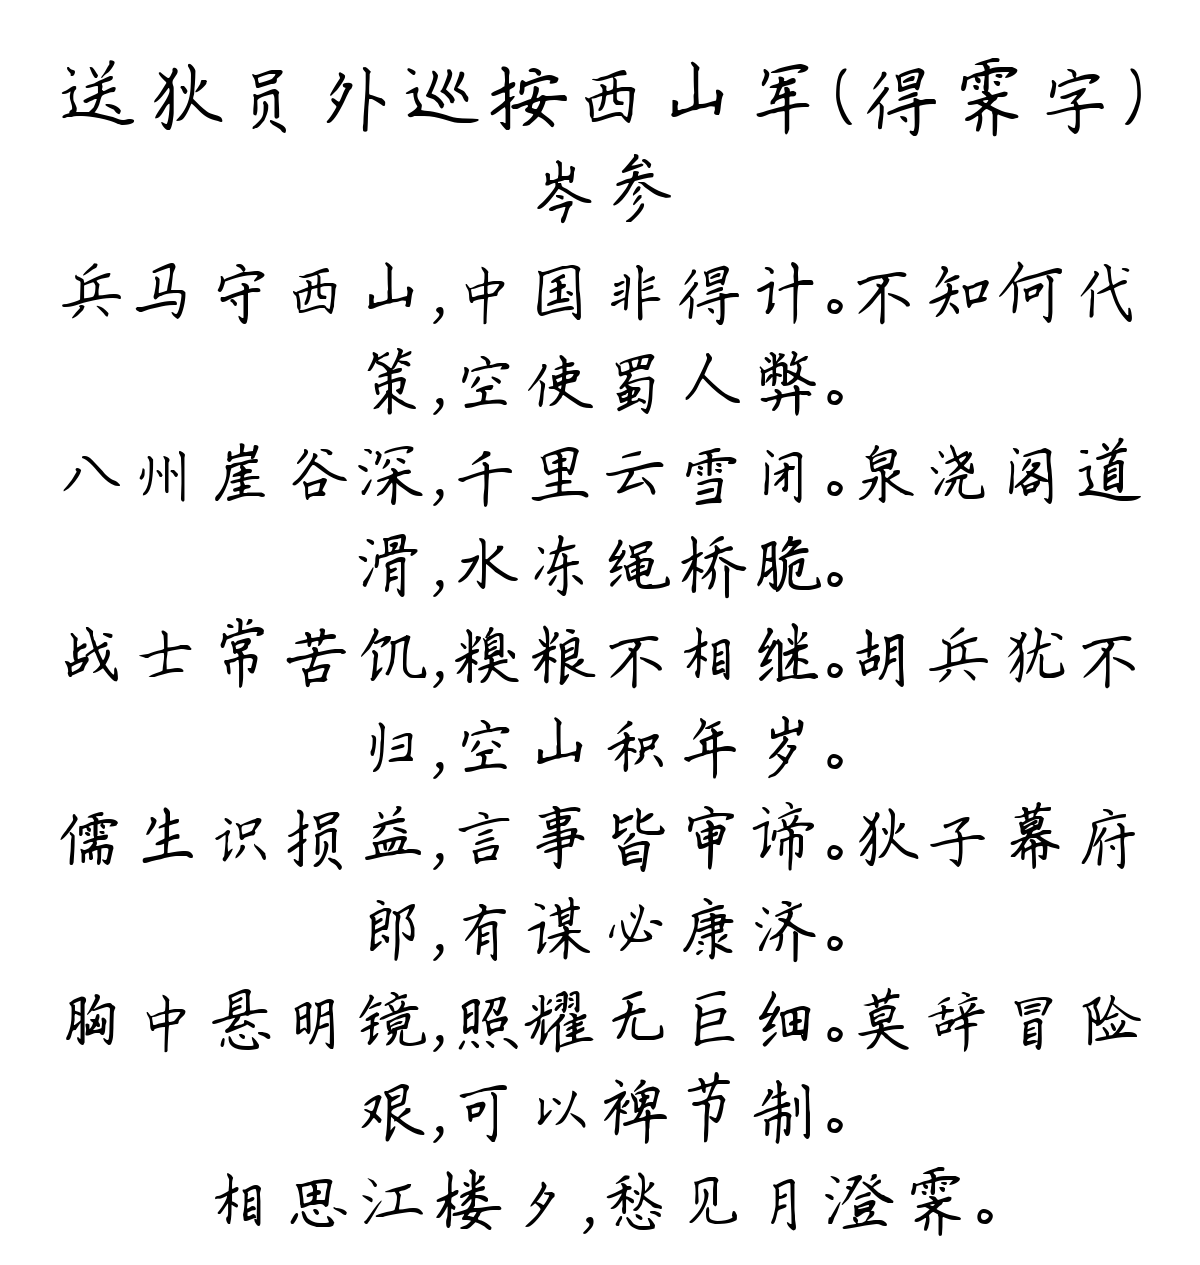 送狄员外巡按西山军(得霁字)
岑参
兵马守西山,中国非得计。不知何代
策,空使蜀人弊。
八州崖谷深,千里云雪闭。泉浇阁道
滑,水冻绳桥脆。
战士常苦饥,糗粮不相继。胡兵犹不
归,空山积年岁。
儒生识损益,言事皆审谛。狄子幕府
郎,有谋必康济。
胸中悬明镜,照耀无巨细。莫辞冒险
艰,可以裨节制。
相思江楼夕,愁见月澄霁。